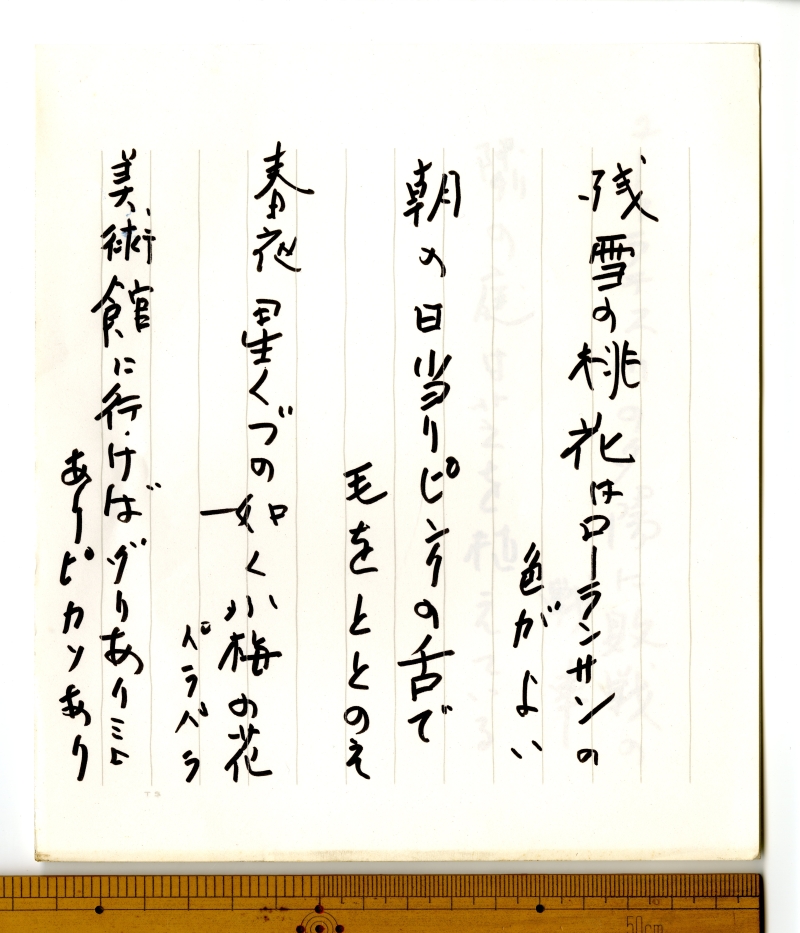 残雪の桃花はローランサンの
色がよい
朝の日当りピンクの舌で
毛をととのえ
春夜星くづの如く小梅の花
パラパラ
美術館に行けばダリありミロ
ありピカソあり
50cm